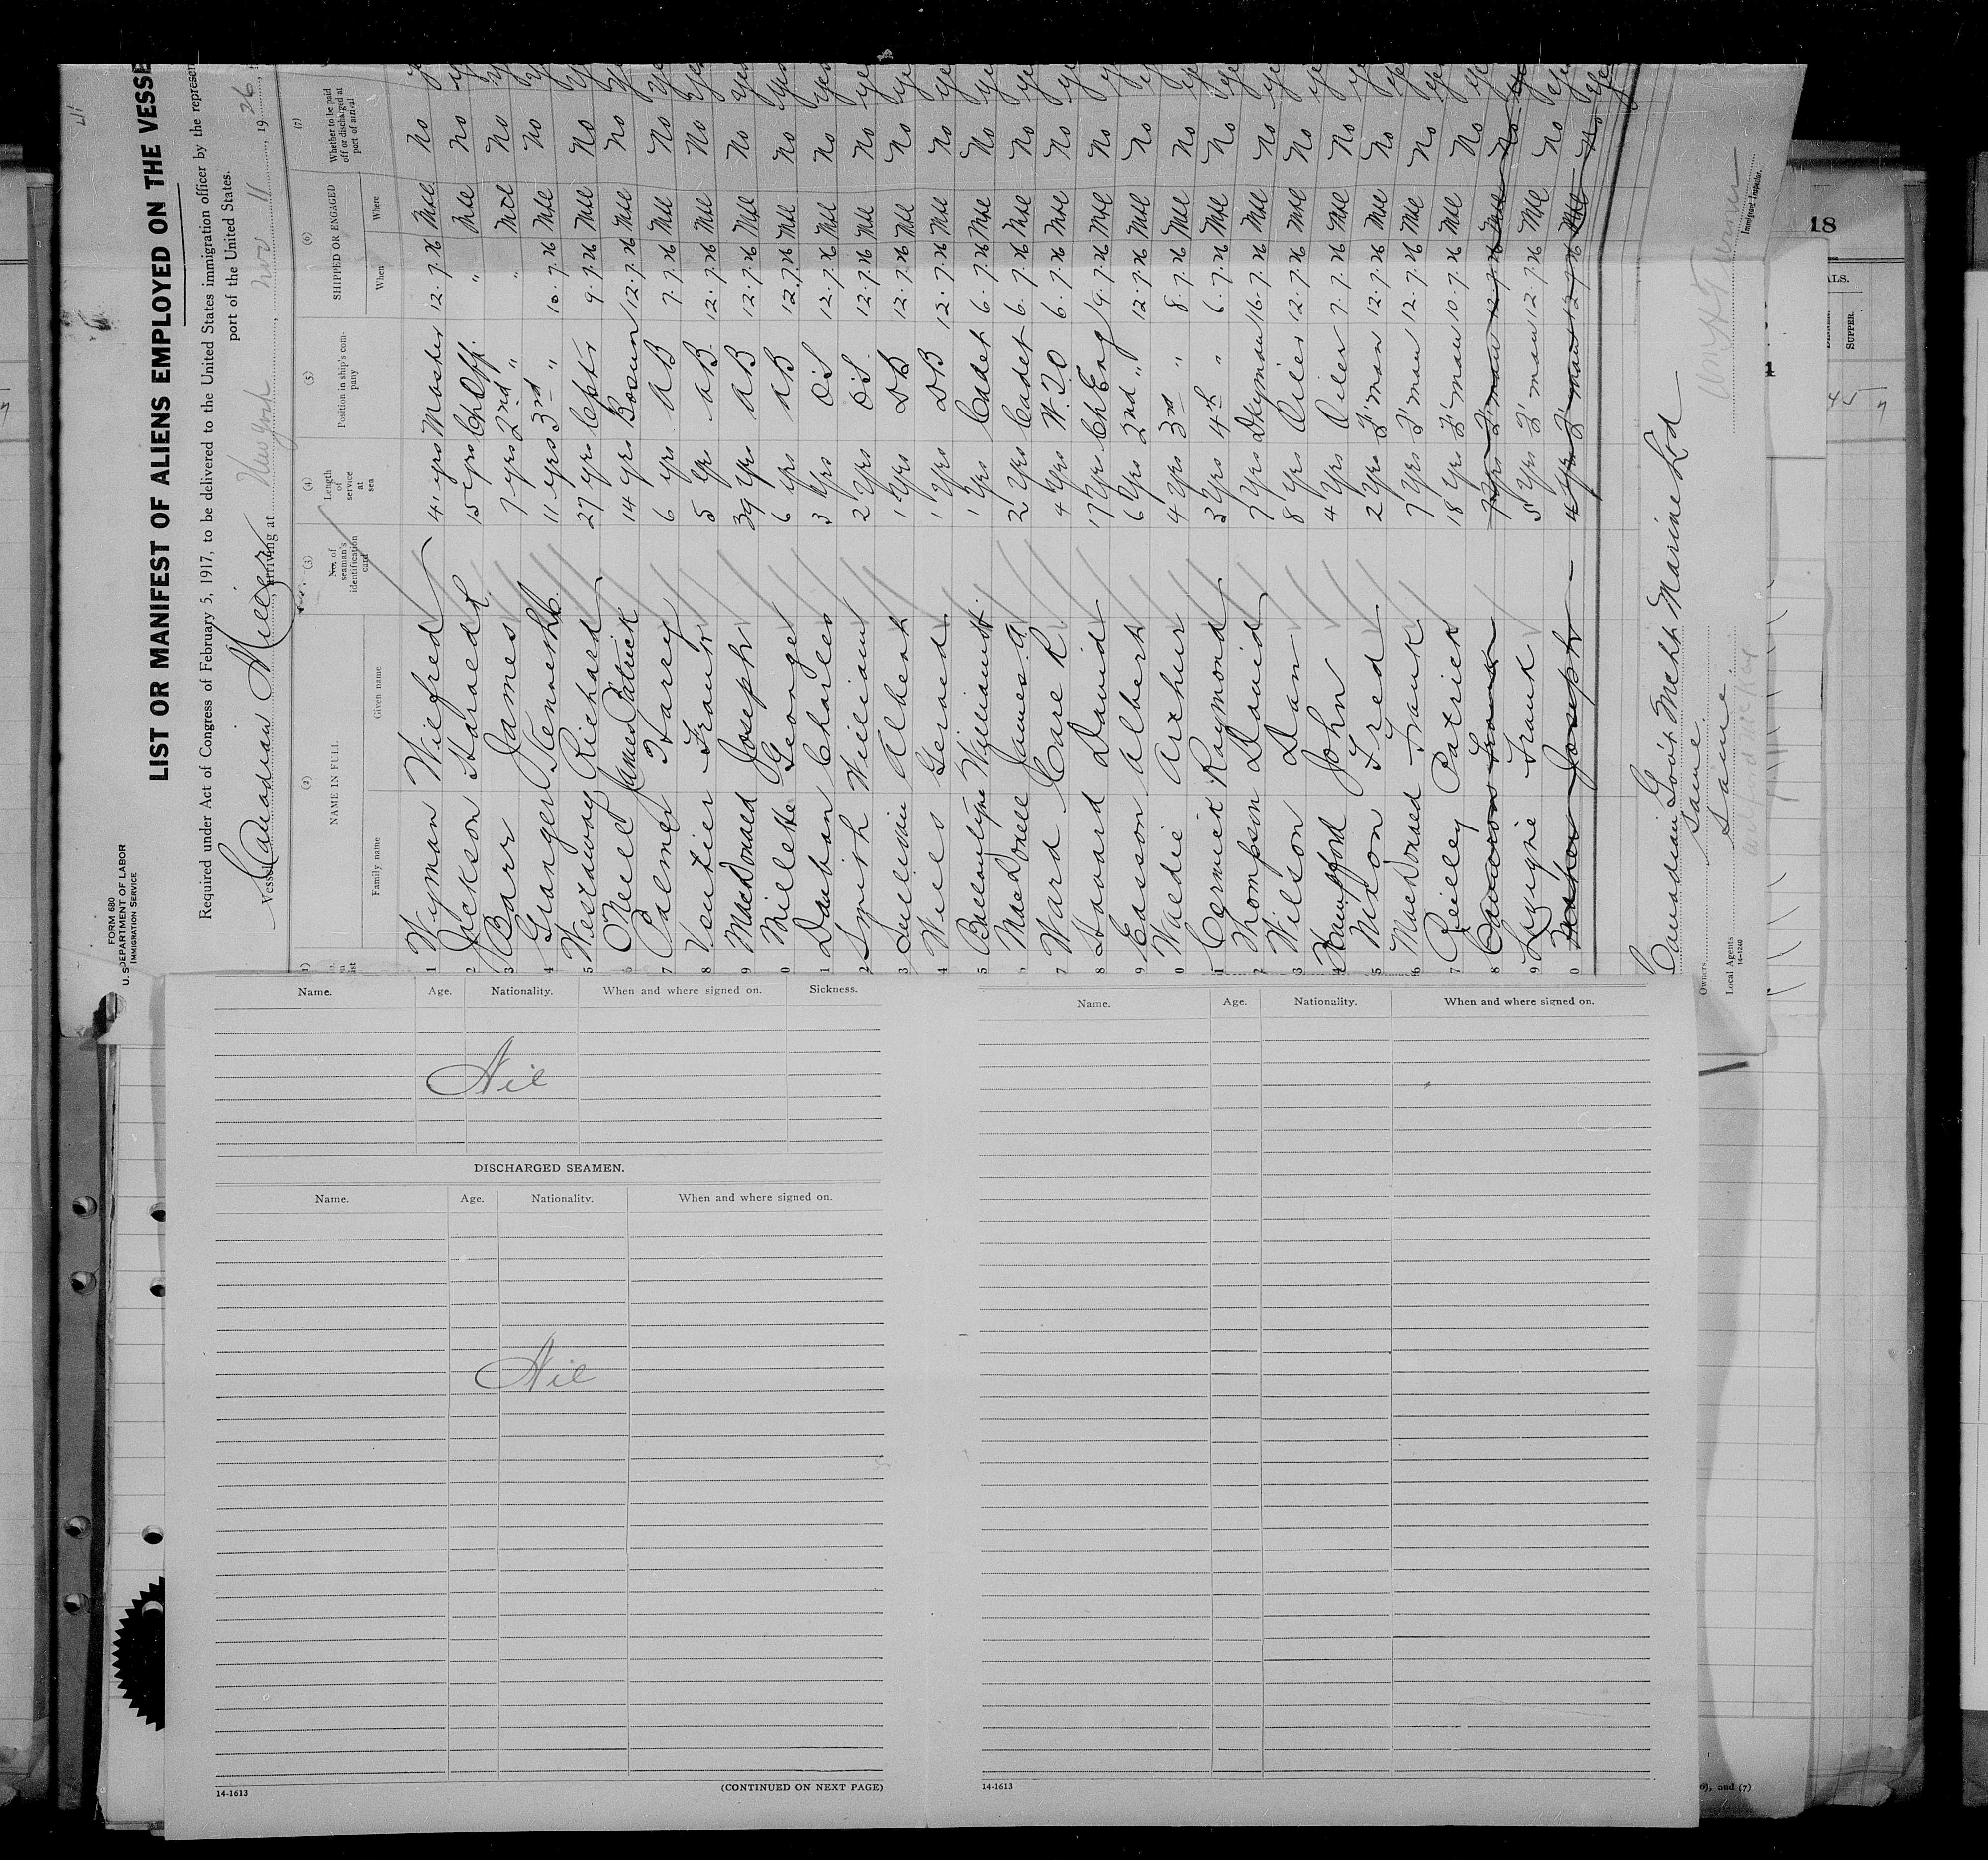 FORM 680
U. S. DEPARTMENT OF LABOR
IMMIGRATION SERVICE
LIST OR MANIFEST OF ALIENS EMPLOYED ON THE VESSE
Required under Act of Congress of February 5, 1917, to be delivered to the United States immigration officer by the represen
port of the United States.
Vessel Canadian Miller, arriving at New York, Nov 11, 1926,
(2) (3) (4) (5) (6) (7)
NAME IN FULL
Family name Given name
Nos. of seaman's identification card
Length of service at sea
Position in ship's company
SHIPPED OR ENGAGED
When Where
Whether to be paid off or discharged at port of arrival
1 Wyman Wilfred 41 yrs Master 12.7.26 Mtl No
2 Jickson Harold 15 yrs Ch Off. " Mtl No
3 Barr James 7 yrs 2nd " " Mtl No
4 Granger Kenneth 11 yrs 3rd " 10.7.26 Mtl No
5 Westaway Richard 27 yrs Cptr 9.7.26 Mtl No
6 O'Neil James Patrick 14 yrs Bosun 12.7.26 Mtl No
7 Palmer Harry 6 yrs AB 7.7.26 Mtl No
8 Ventier Frank 5 yr AB 12.7.26 Mtl No
9 MacDonald Joseph 39 yrs AB 12.7.26 Mtl No
0 Millette George 6 yrs AB 12.7.26 Mtl No
1 Dauban Charles 3 yrs OS 12.7.26 Mtl No
2 Smith William 2 yrs OS 12.7.26 Mtl No
3 Sullivan Albert 1 yrs DB 12.7.26 Mtl No
4 Wills Gerard 1 yrs DB 12.7.26 Mtl No
5 Ballantyne William H. 1 yrs Cadet 6.7.26 Mtl No
6 MacDonell James A 2 yrs Cadet 6.7.26 Mtl No
7 Ward Carl R. 4 yrs 6.7.26 Mtl No
8 Howard David 17 yrs Ch Eng 9.7.26 Mtl No
9 Easson Albert 6 yrs 2nd " 12.7.26 Mtl No
0 Waldie Arthur 4 yrs 3rd " 8.7.26 Mtl No
1 Cerwick Raymond 3 yrs 4th " 6.7.26 Mtl No
2 Thompson David 7 yrs Dkyman 16.7.26 Mtl No
3 Wilson Dan 8 yrs Oiler 12.7.26 Mtl No
4 John 4 yrs Oiler 7.7.26 Mtl No
5 Nixon Fred 2 yrs F'man 12.7.26 Mtl No
6 MacDonald Frank 7 yrs F'man 12.7.26 Mtl No
7 Reilley Patrick 18 yrs F'man 10.7.26 Mtl No
8 Cameron Frank 7 yrs F'man 12.7.26 Mtl No
9 Livigne Frank 5 yrs F'man 12.7.26 Mtl No
0 Joseph 4 yrs F'man 12.7.26 Mtl No
Canadian Gov't Mcht Marine Ltd
Owners Same
Local Agents Same
14-1240
Immigrant Inspector.
18
ALS.
SUPPER.
Name. Age. Nationality. When and where signed on. Sickness.
Nil
DISCHARGED SEAMEN.
Name. Age. Nationality. When and where signed on.
Nil
14-1613 (CONTINUED ON NEXT PAGE)
Name. Age. Nationality. When and where signed on.
14-1613
, and (7)